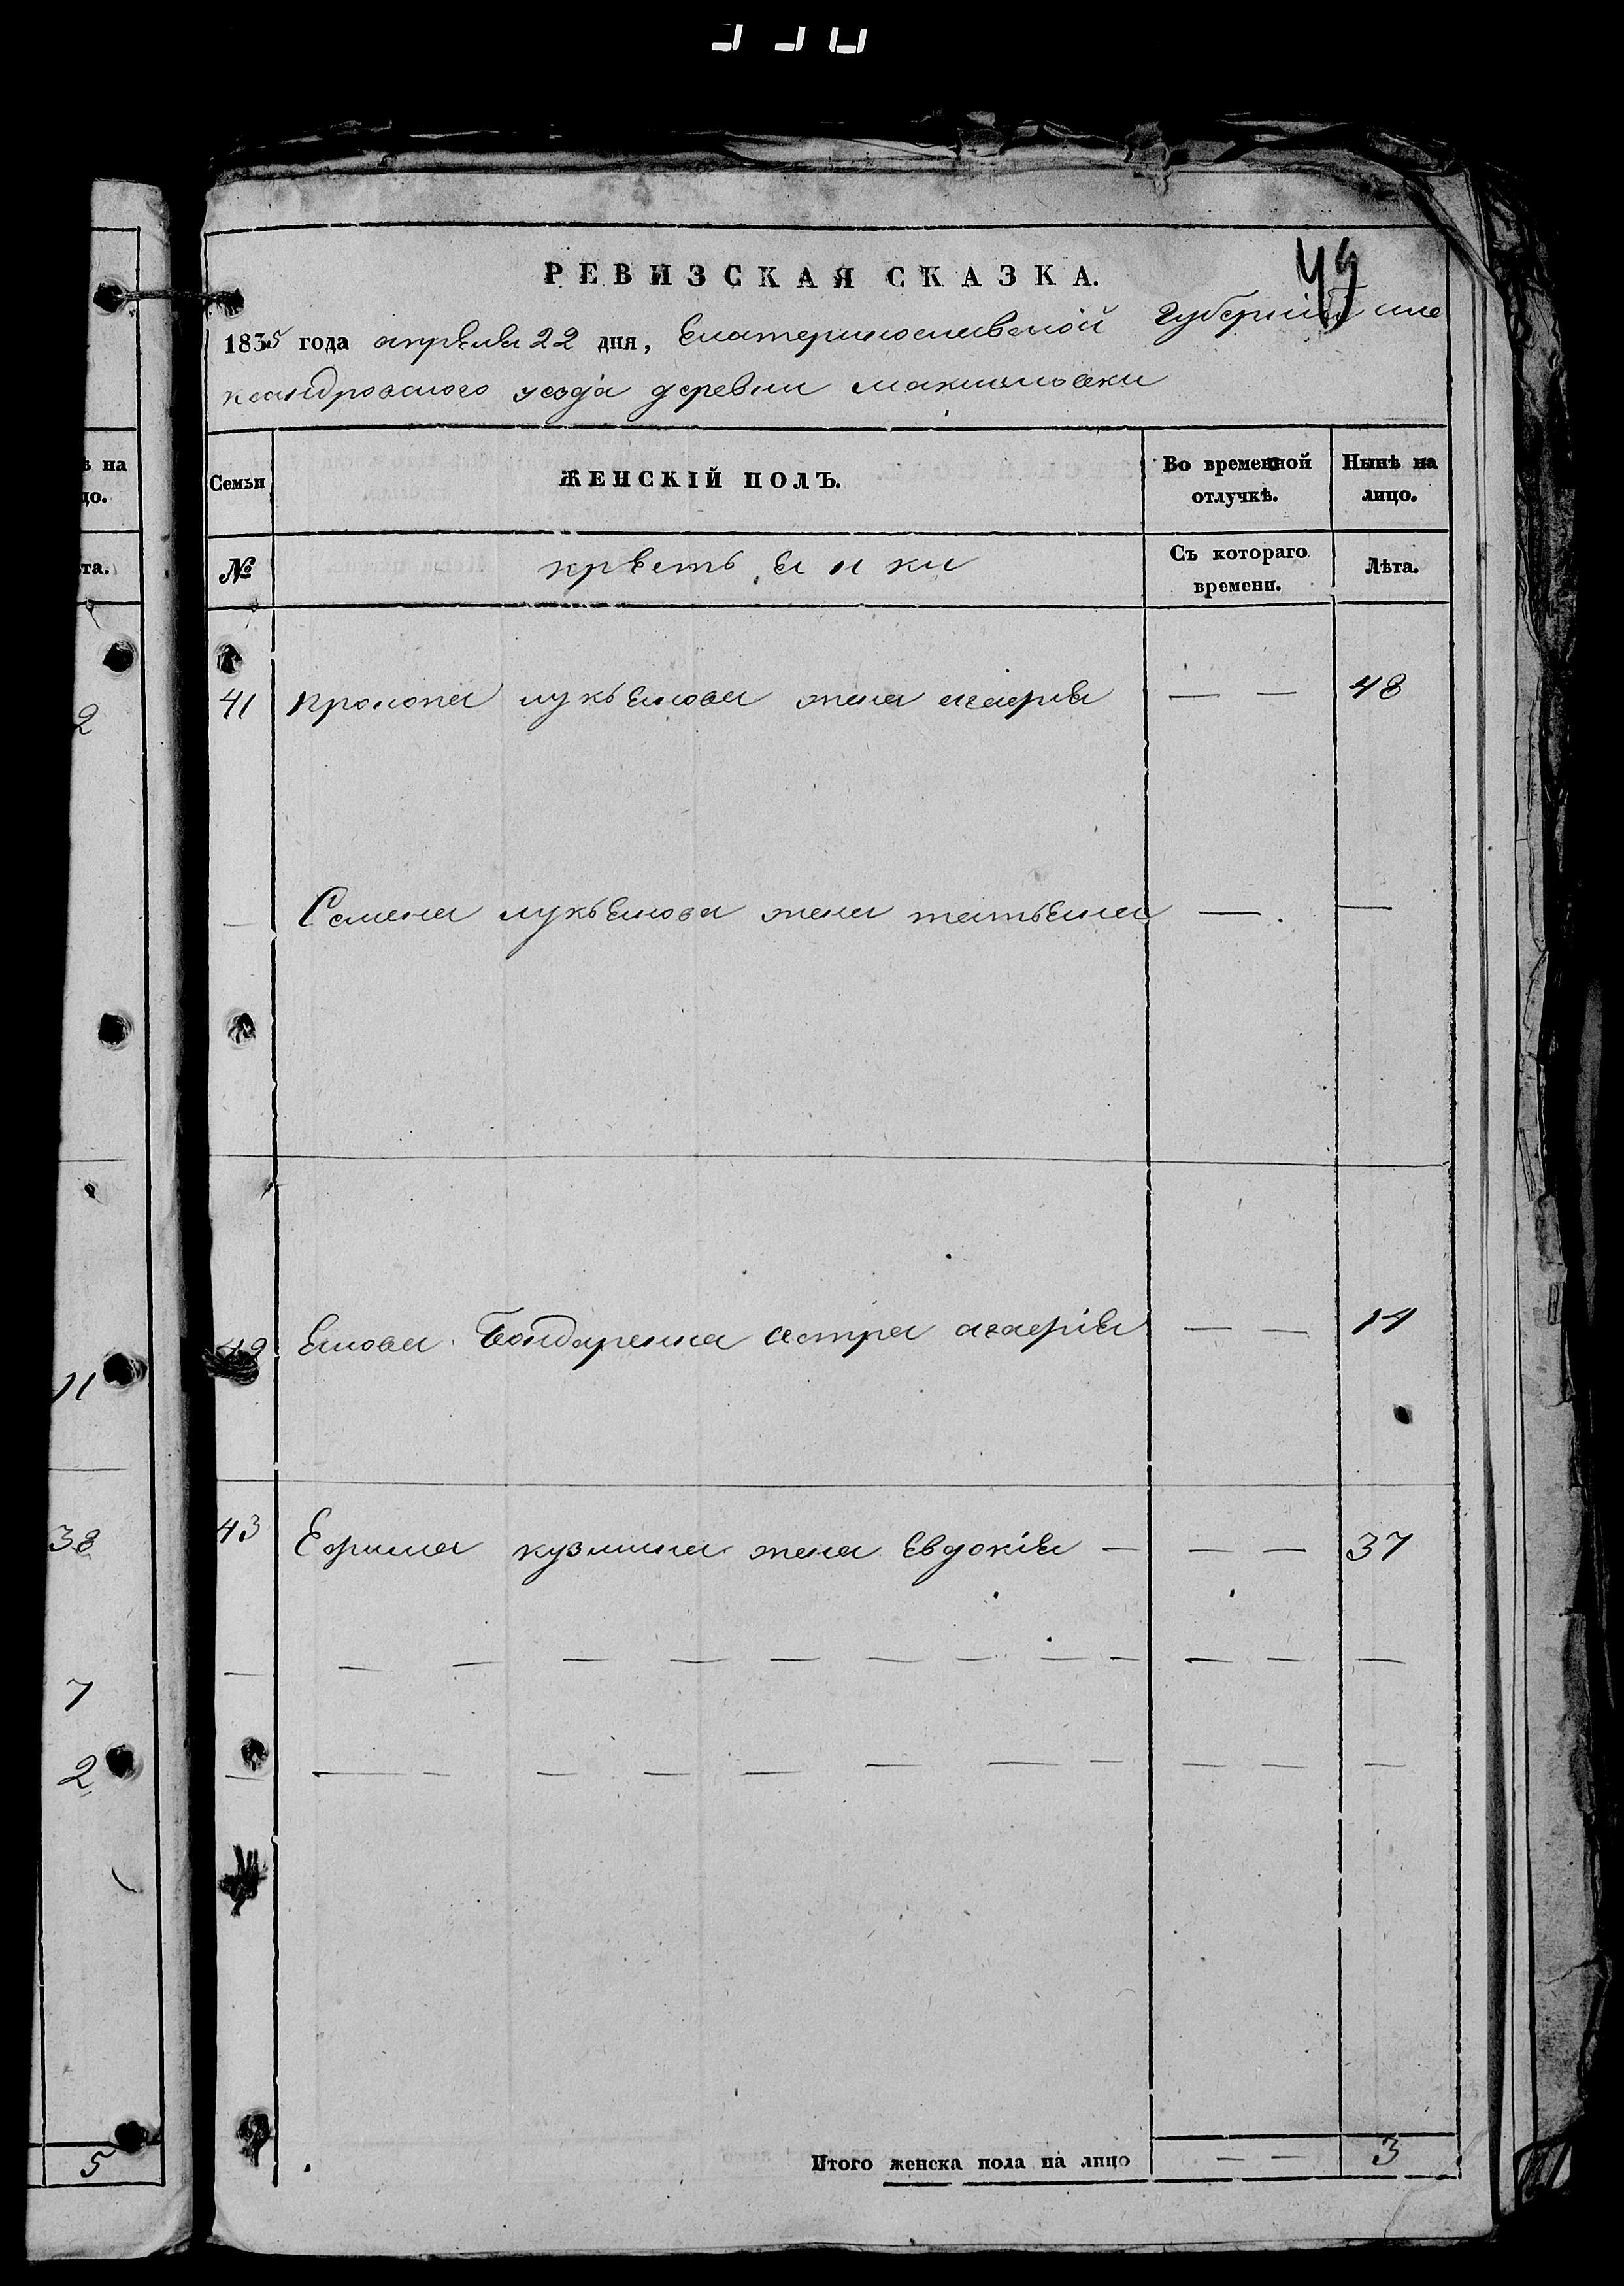 49
РЕВИЗСКАЯ СКАЗКА.
1835 года апреля 22 дня, Екатеринославской Губерніи але
ксандровского уезда деревни
Семьи
ЖЕНСКІЙ ПОЛЪ.
Во временной отлучкѣ.
Нынѣ на лицо.
№
крестьянки
Съ котораго времени.
Лѣта.
41 прокопа лукьянова жена агафія — — 48
— Семена лукьянова жена татьяна — . —
42 Якова Бондаренка сестра агафія — — 14
43 Ефима кузмина жена Евдокія — — — 37
Итого женска пола на лицо — — 3
ѣ на
цо.
та.
2
11
38
7
2
5